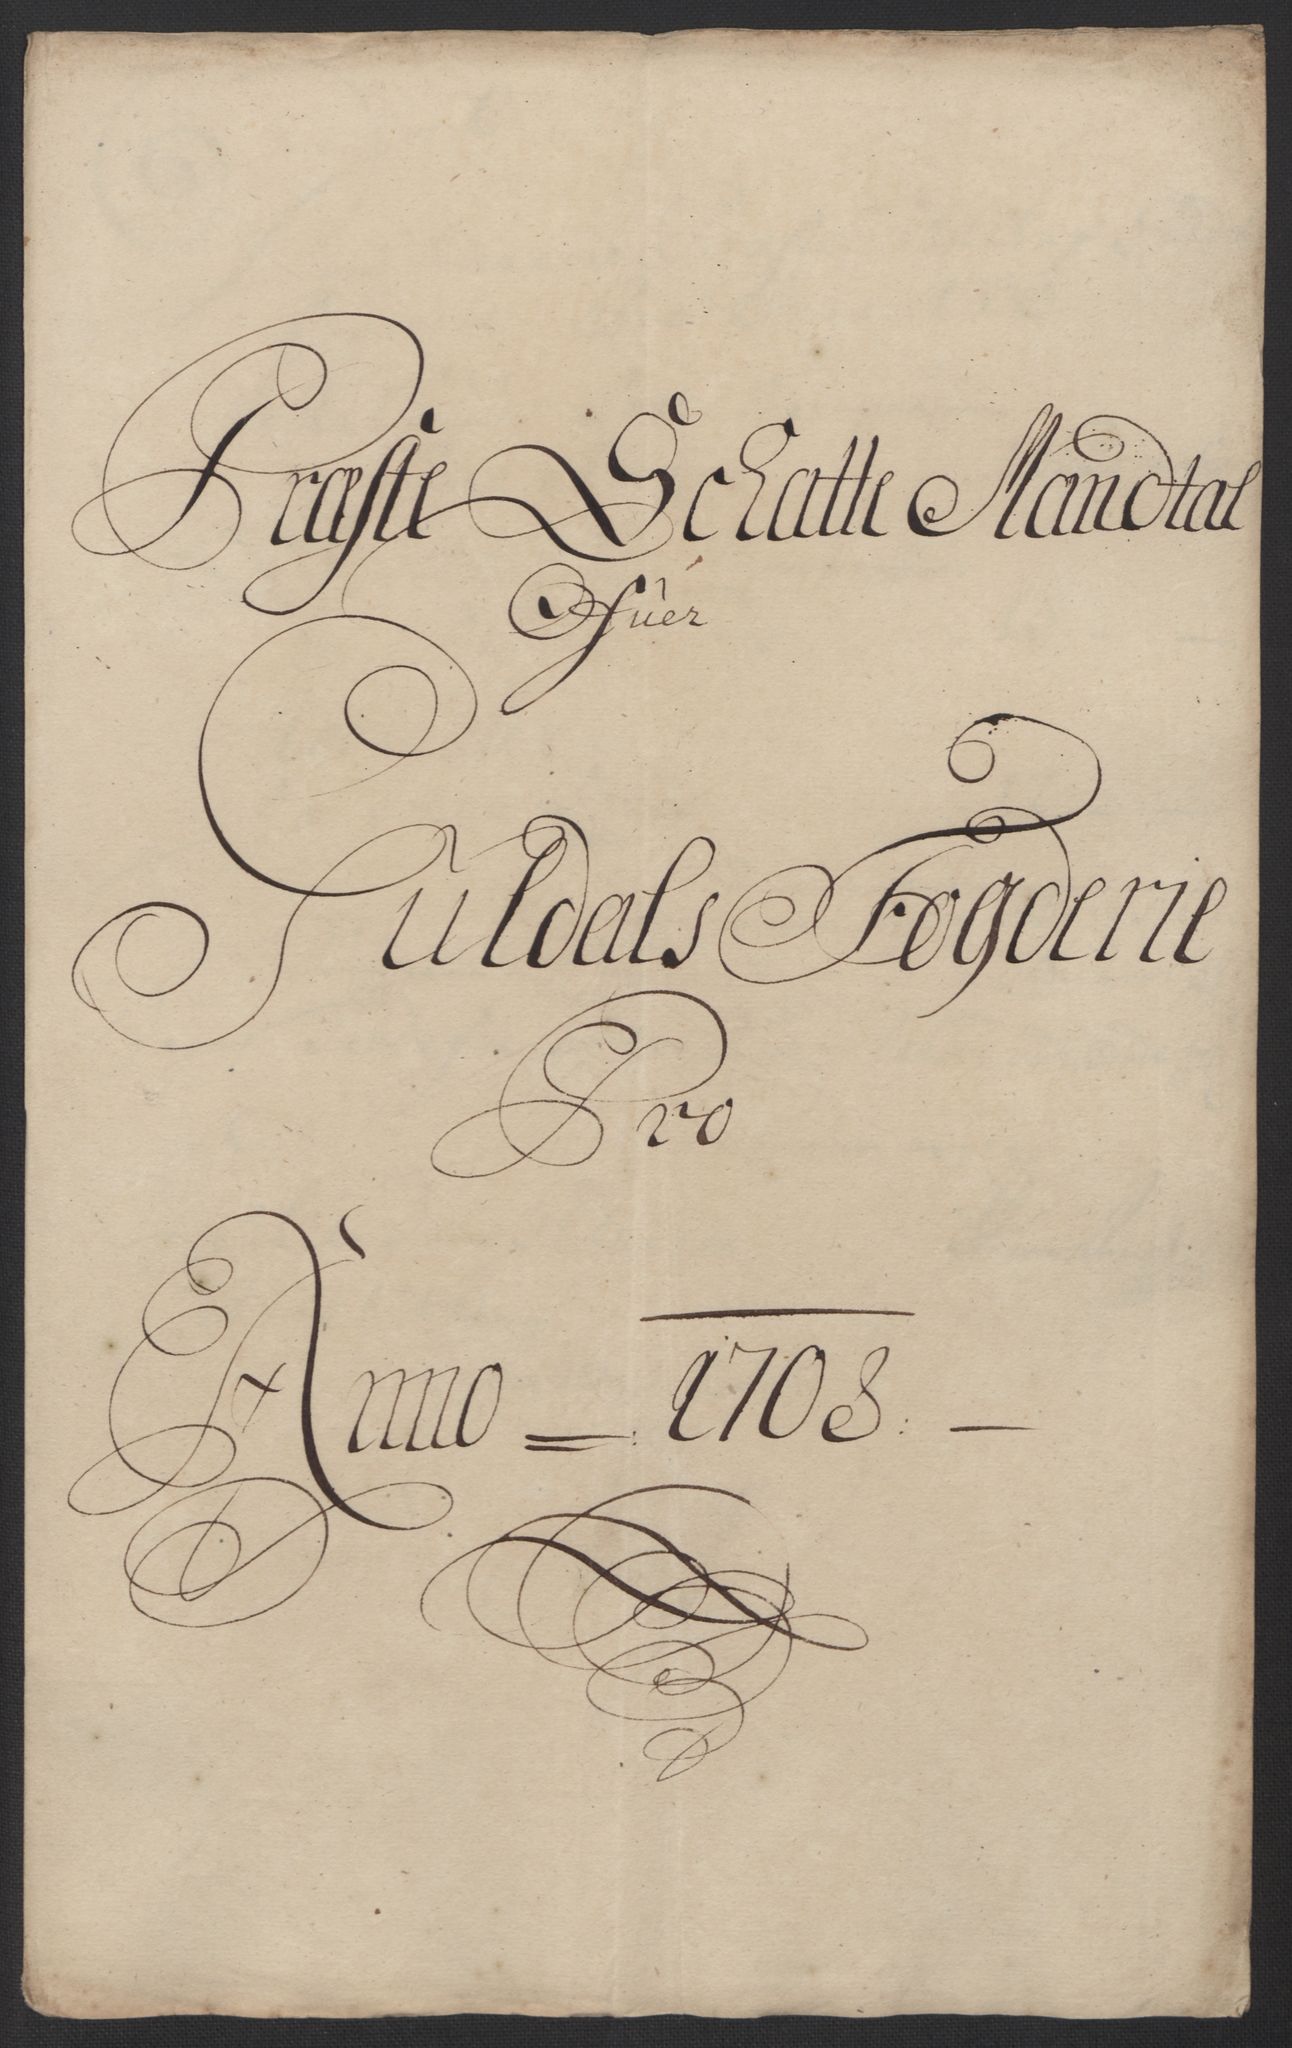 Præste Schatte Mandtal
Ofuer
Guldals Fogderie
Pro
Anno = 1708. —